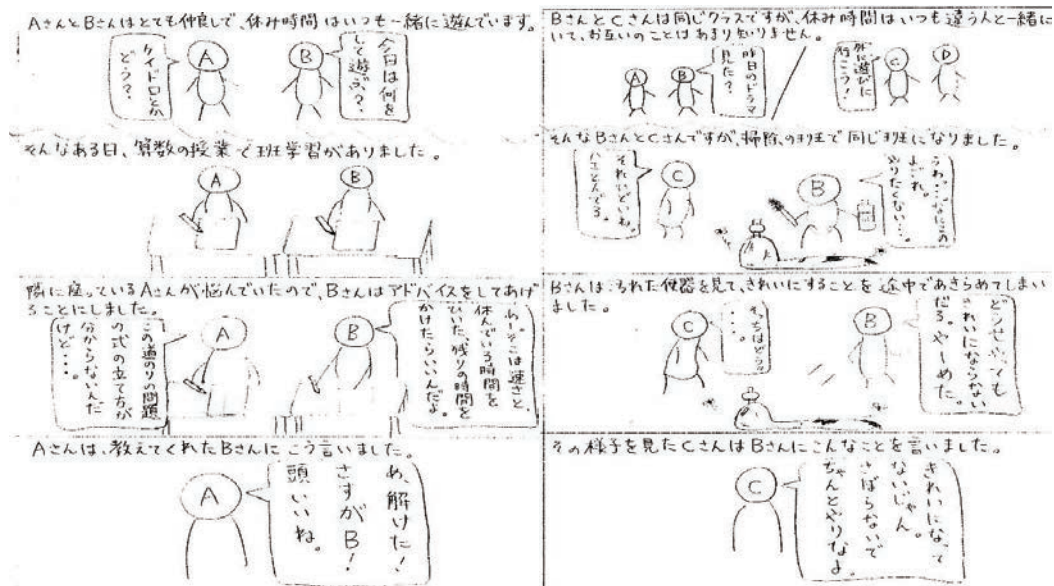 AさんとBさんはとても仲良しで、休み時間はいつも一緒に遊んでいます。
今日は何を
して遊ぶ?
ケイドロとか
どう?
A
B
そんなある日、算数の授業で班学習がありました。
A
B
隣に座っているAさんが悩んでいたので、Bさんはアドバイスをしてあげ
ることにしました。
この道のりの問題
の式の立て方が
分からないんだ
けど・・・。
A
B
あー。そこは速さと、
休んでいる時間を
ひいた、残りの時間を
かけたらいいんだよ。
Aさんは、教えてくれたBさんにこう言いました。
A
あ、解けた!
さすがB!
頭いいね。
BさんとCさんは同じクラスですが、休み時間はいつも違う人と一緒に
いて、お互いのことはあまり知りません。
A
B
昨日のドラマ
見た?
外に遊びに
行こう!
C
D
そんなBさんとCさんですが、掃除の班で同じ班になりました。
それひどいね。
ハエとんでる。
C
B
うわ・・・なにこの
よごれ。
やりたくない・・・。
Bさんは汚れた便器を見て、きれいにすることを途中であきらめてしまい
ました。
C
そっちはどう?
・・・。
B
どうせやっても
きれいにならない
だろ。やーめた。
その様子を見たCさんはBさんにこんなことを言いました。
C
きれいになって
ないじゃん。
さぼらないで
ちゃんとやりなよ。